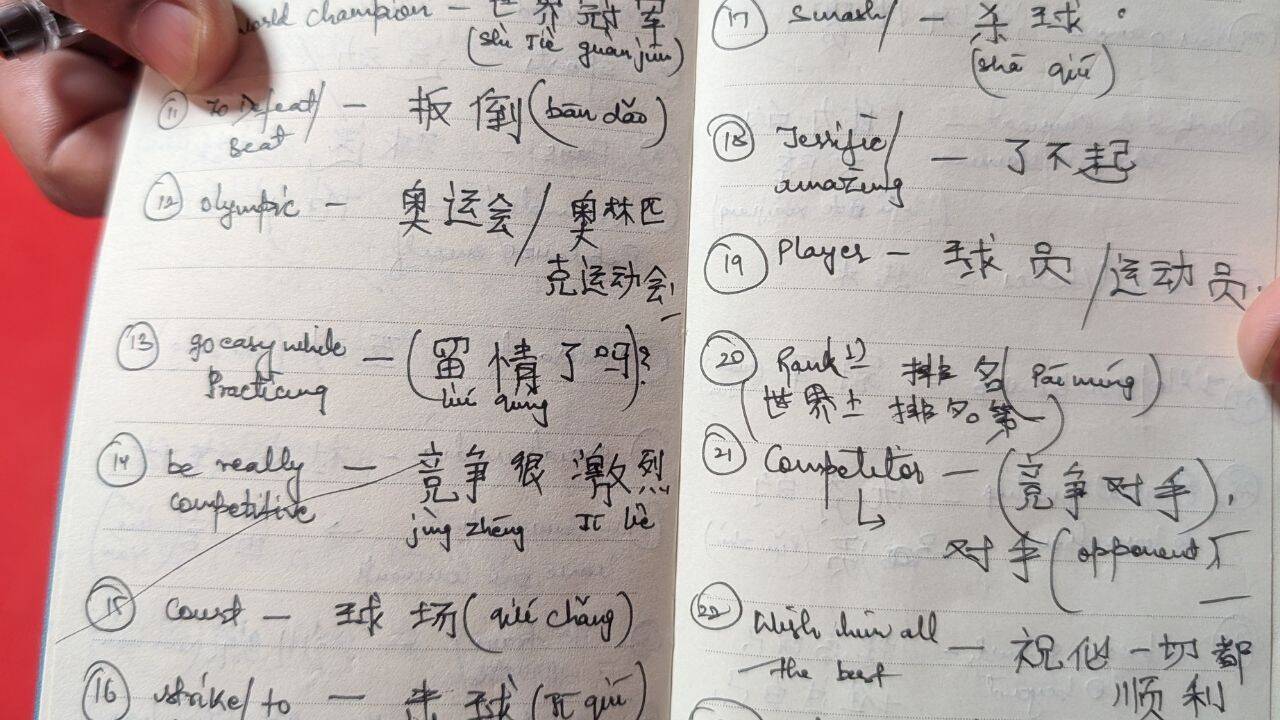 world champion – 世界冠军
(shì Jiè guàn jūn)
⑪ To Defeat/ – 扳倒 (bān dǎo)
Beat
⑫ Olympic – 奥运会 / 奥林匹
克运动会
⑬ go easy while – (留情了吗)?
Practicing liú qíng
⑭ be really – 竞争很激烈
competitive jìng zhēng Jī liè
⑮ Court – 球场 (qiú chǎng)
⑯ strike/to – 击球 (Jī qiú)
⑰ Smash/ – 杀球
(shā qiú)
⑱ Terrific/ – 了不起
amazing
⑲ Player – 球员 / 运动员
⑳ Rank – 排名 (Pái míng)
(世界上排名第一)
㉑ Competitor – (竞争对手)
↳ 对手 (opponent)
㉒ Wish him all – 祝他一切都
the best 顺利